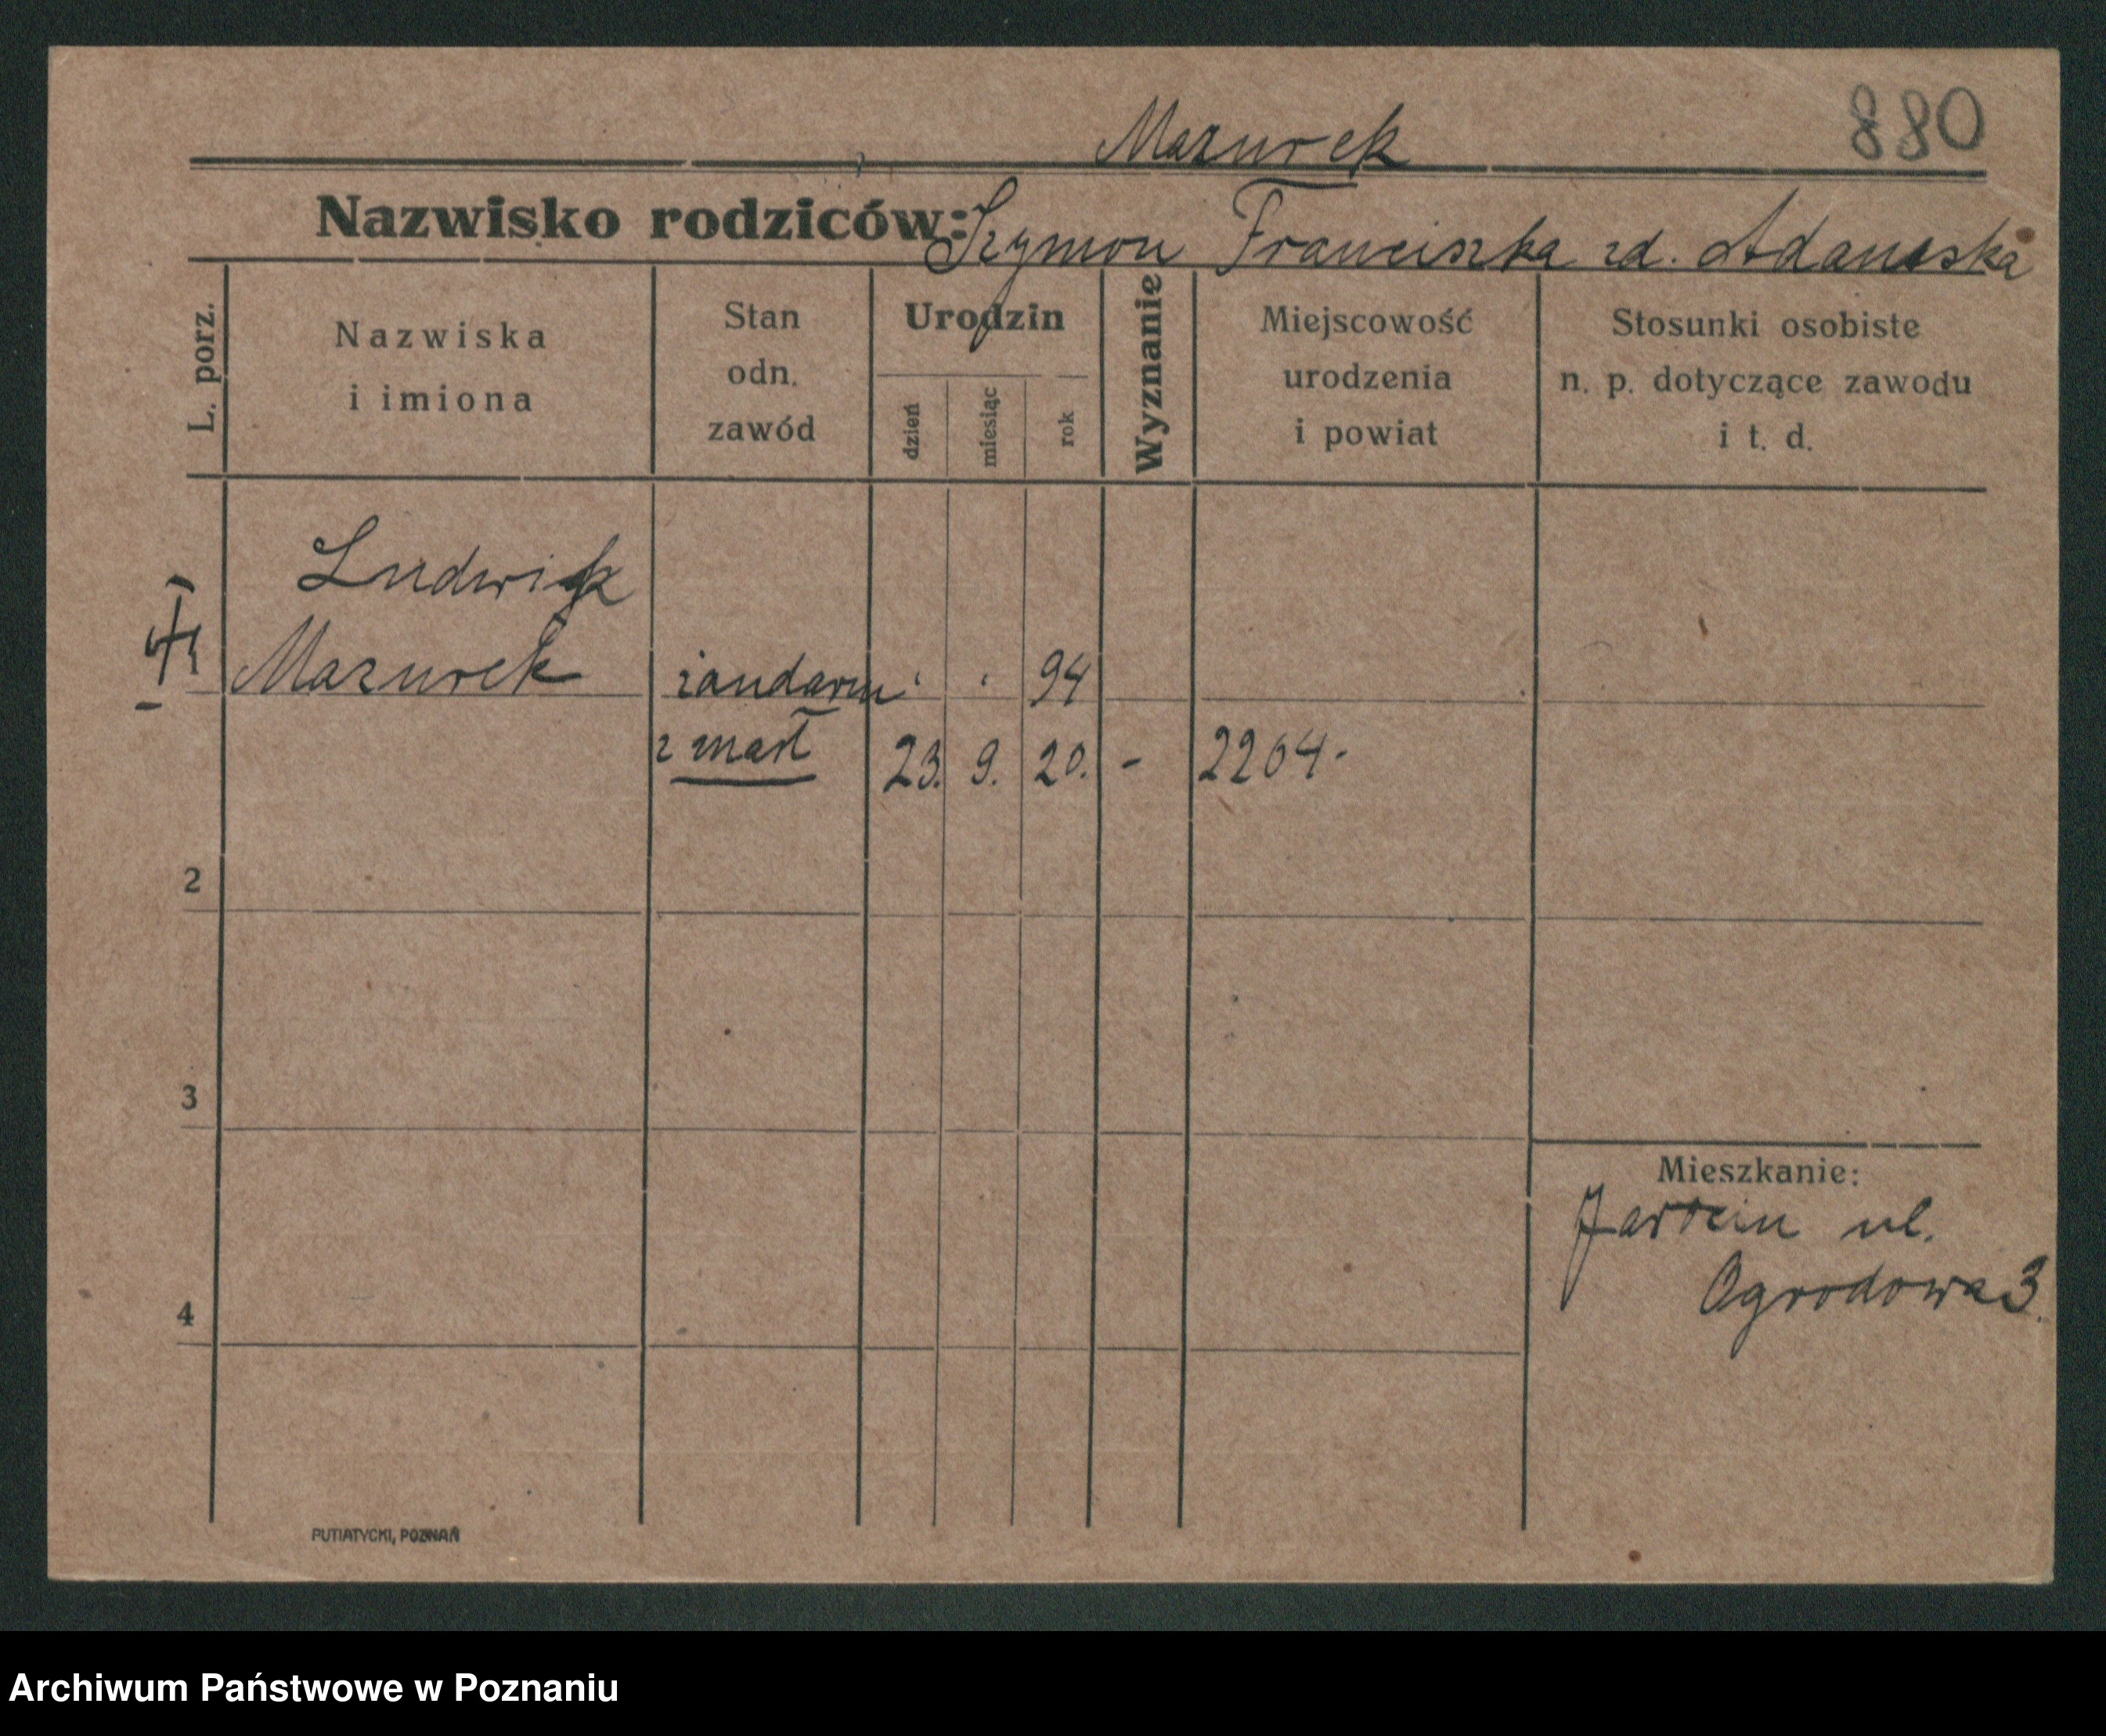 880
Mazurek
Nazwisko rodziców: Szymon Franciszka zd. Adamska
L. porz.
Nazwiska
i imiona
Stan
odn.
zawód
Urodzin
dzień
miesiąc
rok
Wyznanie
Miejscowość
urodzenia
i powiat
Stosunki osobiste
n. p. dotyczące zawodu
i t. d.
Ludwik
Mazurek żandarm 94
zmarł 23. 9. 20. - 2264-
2
3
Mieszkanie:
ul.
Ogrodowa 3.
4
PUTIATYCKI, POZNAŃ
Archiwum Państwowe w Poznaniu